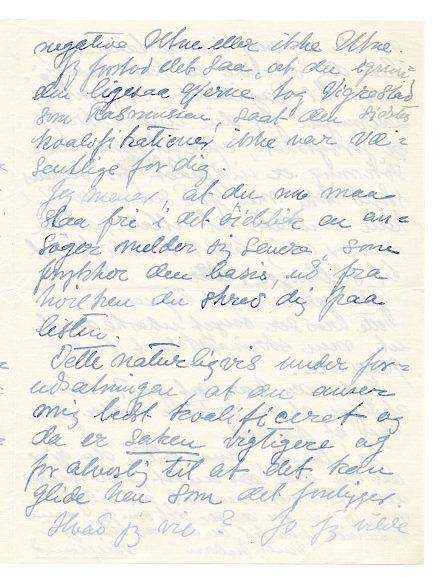 negative Utne eller ikke Utne.
Jeg forstod det saa, at du egent
den ligesaa gjerne tog Vigrestad
som Rasmussen, saat den sidstes
kvalifikationer ikke var væ=
sentlige for dig.
Jeg mener, at du nu maa
staa fri i det öieblik en an=
söger melder sig senere, som
den basis, ud fra
hvilken du skrev dig paa
listen.
Dette naturligvis under for=
udsætningen at du anser
mig bedst kvalificeret og
da er saken vigtigere og
for alvorlig til at det kan
glide hen som det foreligger.
Hvad jeg vil? Jo jeg vilde